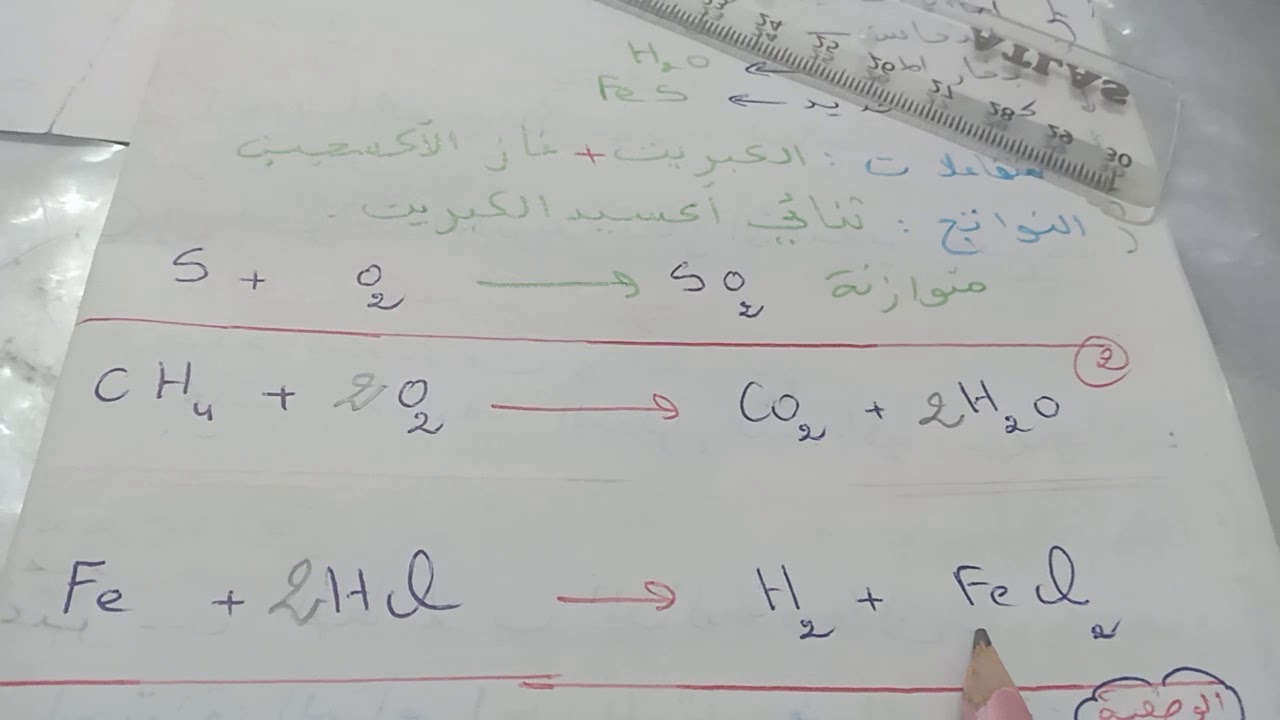 H₂O ←
FeS ←
متفاعلات : الكبريت + غاز الأكسجين
النواتج : ثنائي أكسيد الكبريت .
S + O₂ → SO₂ متوازنة
②
CH₄ + 2O₂ → CO₂ + 2H₂O
Fe + 2HCl → H₂ + FeCl₂
الوضعية
ATLAS
23 24 25 26 27 28 29 30